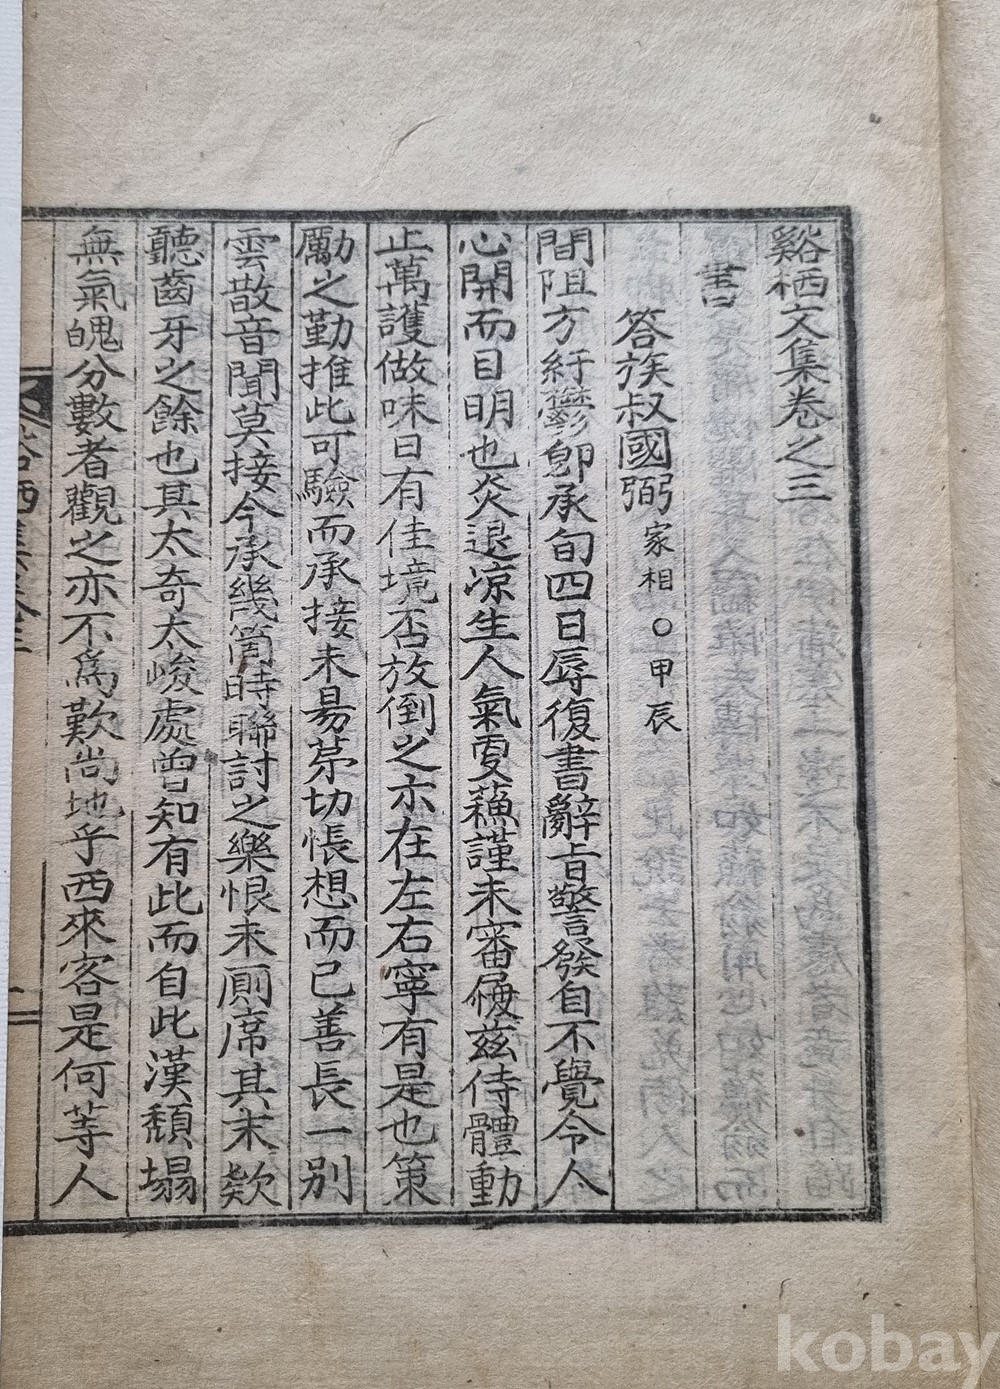 谿栖文集卷之三
書
答族叔國弼 家相 ○甲辰
間阻方紆鬱卽承旬四日辱復書辭旨警發自不覺令人
心開而目明也炎退凉生人氣夏蘓謹未審履玆侍體動
止萬護做味日有佳境否放倒之示在左右寧有是也策
勵之勤推此可驗而承接未易茅切悵想而已善長一別
雲散音聞莫接今承幾箇時聯討之樂恨未厠席其末歎
聽齒牙之餘也其太奇太峻處曾知有此而自此漢頹塌
無氣魄分數者觀之亦不爲歎尙地乎西來客是何等人
谿栖集卷三
一
kobay